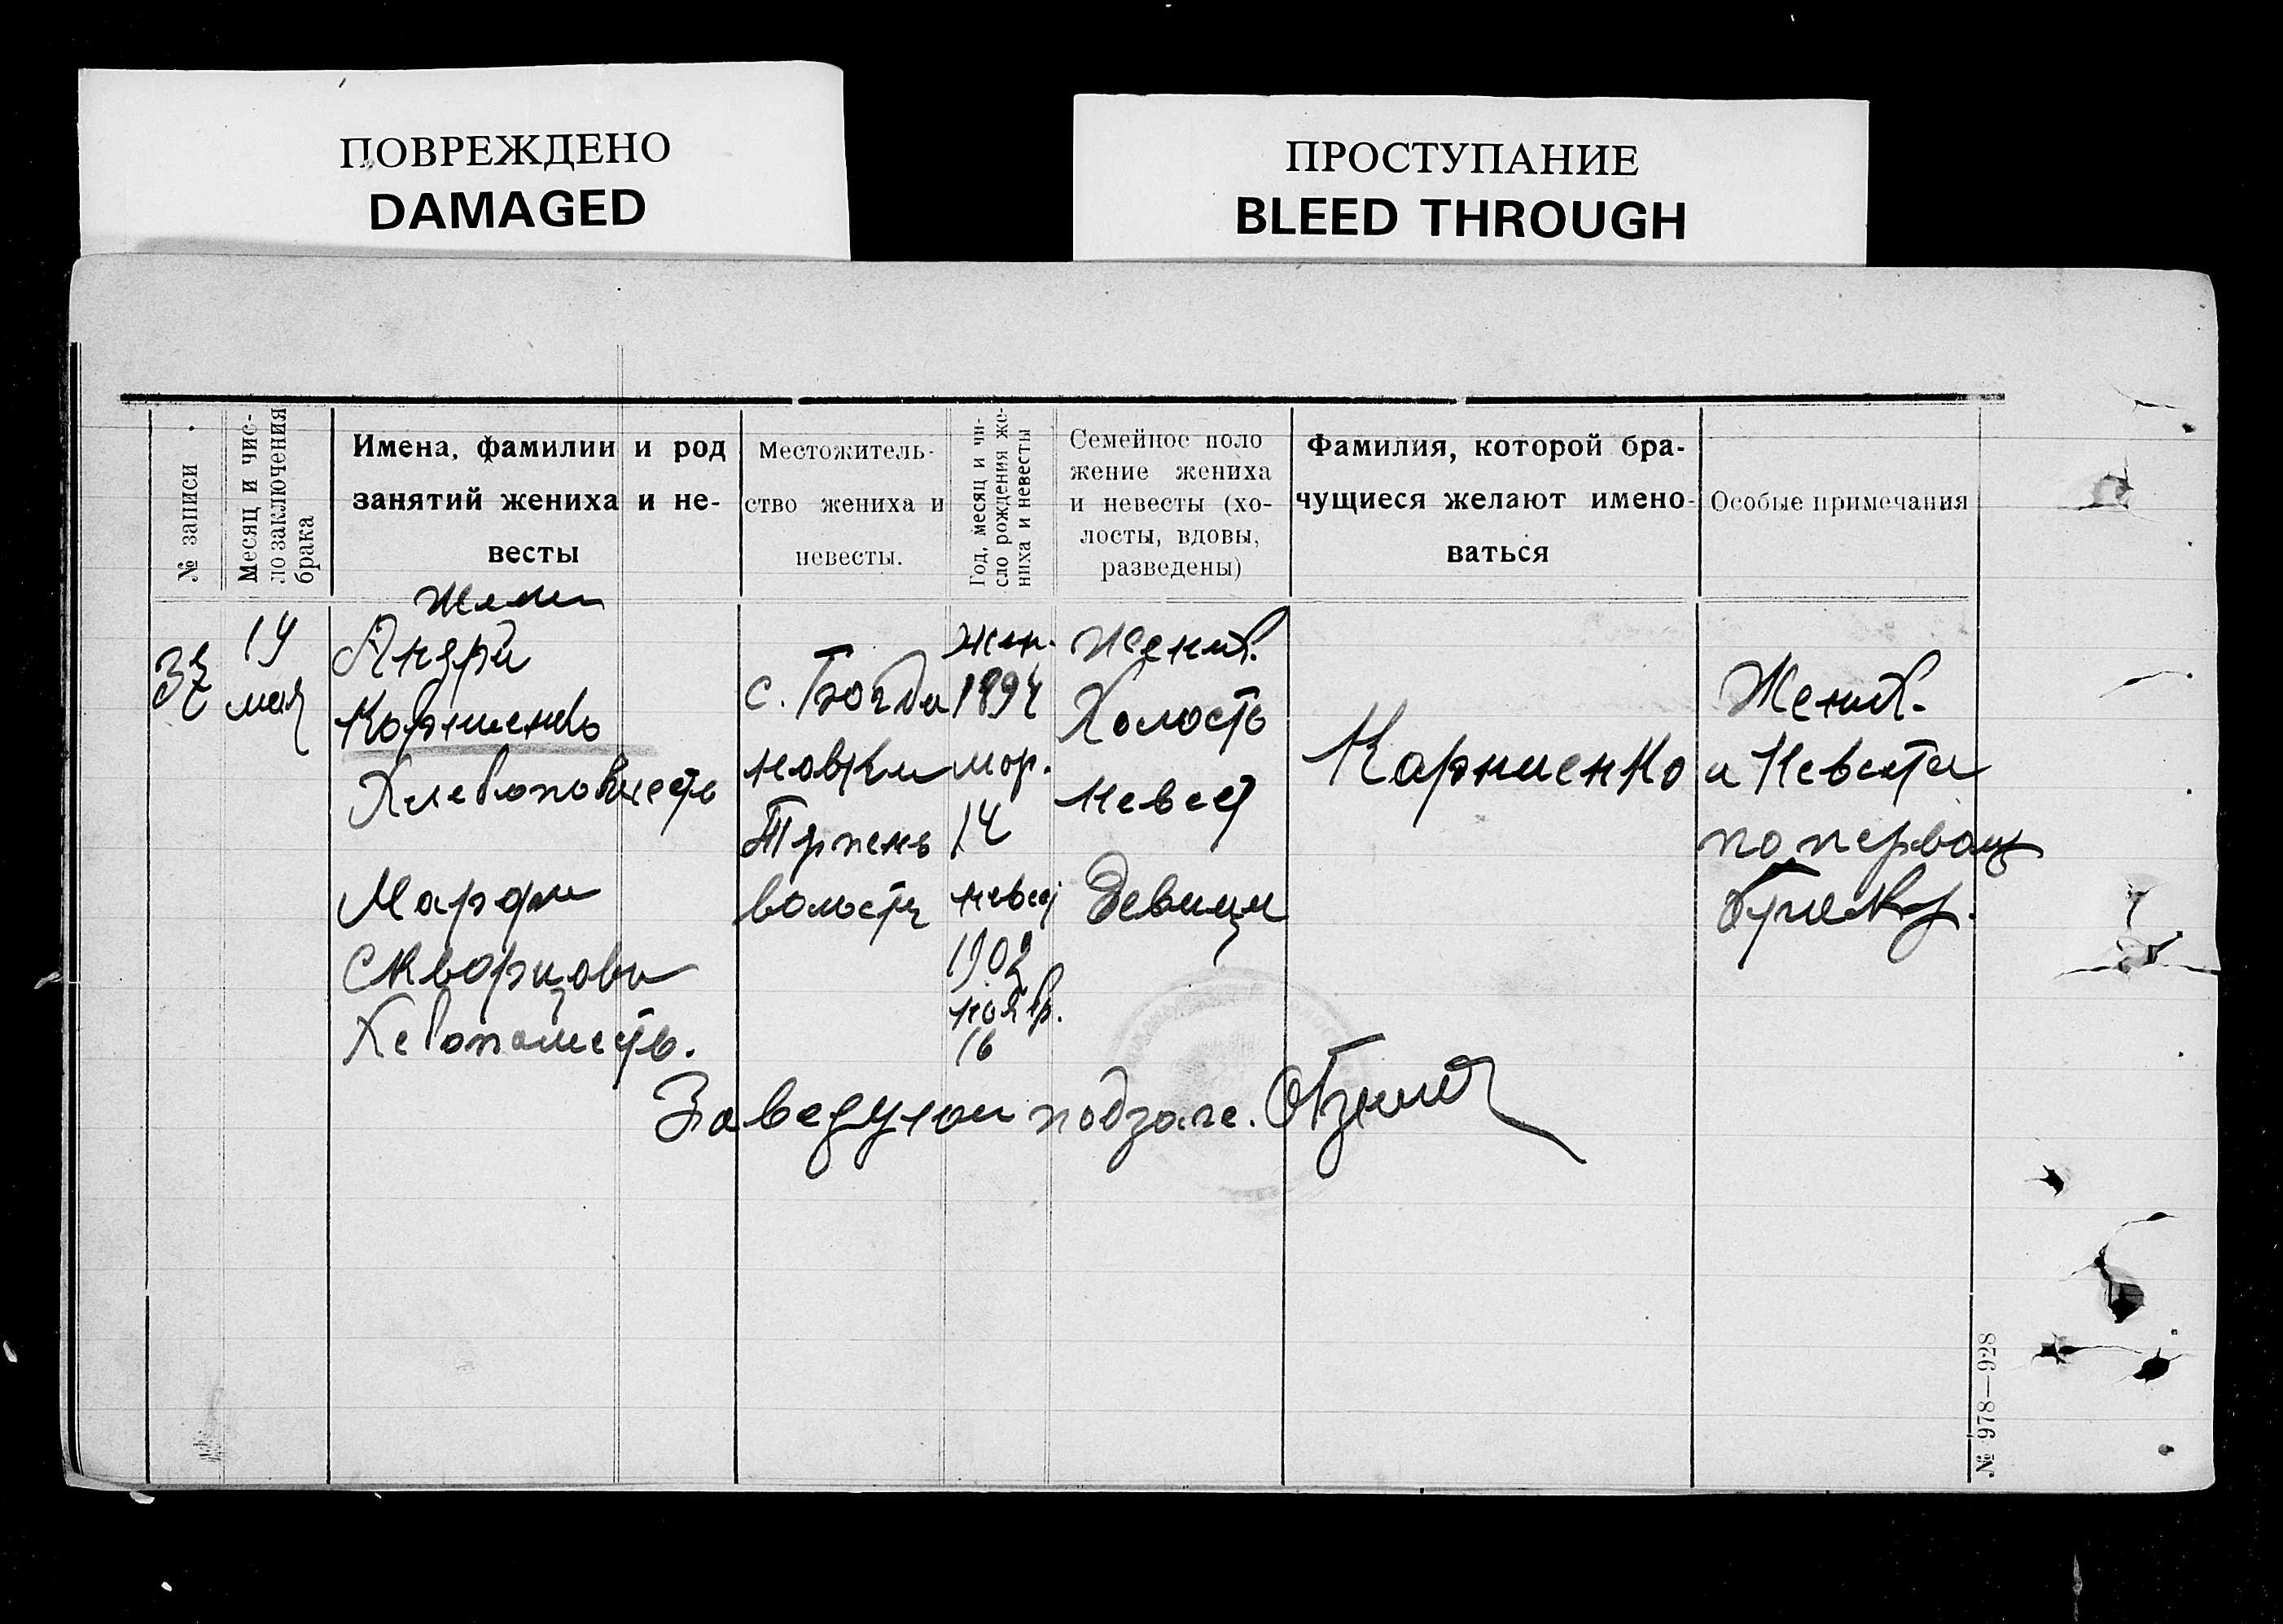 ПОВРЕЖДЕНО
DAMAGED
ПРОСТУПАНИЕ
BLEED THROUGH
№ записи
Месяц и чис-
ло заключения
брака
Имена, фамилии и род
занятий жениха и не-
весты
Местожитель-
ство жениха и
невесты.
Год, месяц и чи-
сло рождения же-
ниха и невесты
Семейное поло
жение жениха
и невесты (хо-
лосты, вдовы,
разведены)
Фамилия, которой бра-
чущиеся желают имено-
ваться
Особые примечания
19
мая
Андри
Карниенко
Марфа
Скворцова
с. Богда
новки
Терпень
волости
жен.
1894
мар.
14
невес
1902
ноябр.
16
Жених.
Холость
Невес
Девица
Карниенко
Жених.
и Невеста
по первому
браку.
Заведующ подзаге.
№ 978—928